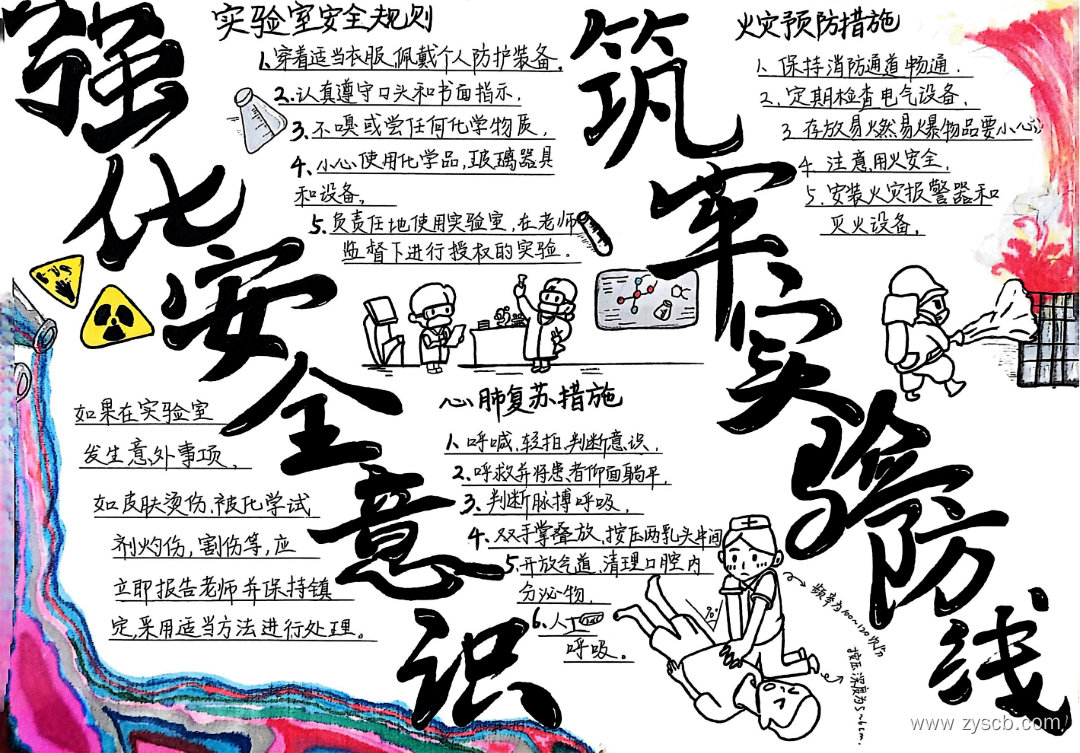 强化安全意识
筑牢实验防线
实验室安全规则
1.穿着适当衣服,佩戴个人防护装备。
2.认真遵守口头和书面指示.
3.不嗅或尝任何化学物质.
4.小心使用化学品,玻璃器具
和设备。
5.负责任地使用实验室,在老师
监督下进行授权的实验.
火灾预防措施
1.保持消防通道畅通.
2.定期检查电气设备.
3.存放易燃易爆物品要小心
4.注意用火安全.
5.安装火灾报警器和
灭火设备.
如果在实验室
发生意外事项.
如皮肤烫伤,被化学试
剂灼伤,割伤等,应
立即报告老师并保持镇
定,采用适当方法进行处理。
心肺复苏措施
1.呼喊,轻拍,判断意识.
2.呼救并将患者仰面躺平.
3.判断脉搏呼吸.
4.双手掌叠放,按压两乳头中间
5.开放气道,清理口腔内
分泌物.
6.人工
呼吸。
90°
频率为100~120次/分
按压深度为5~6cm.
www.zyscb.com